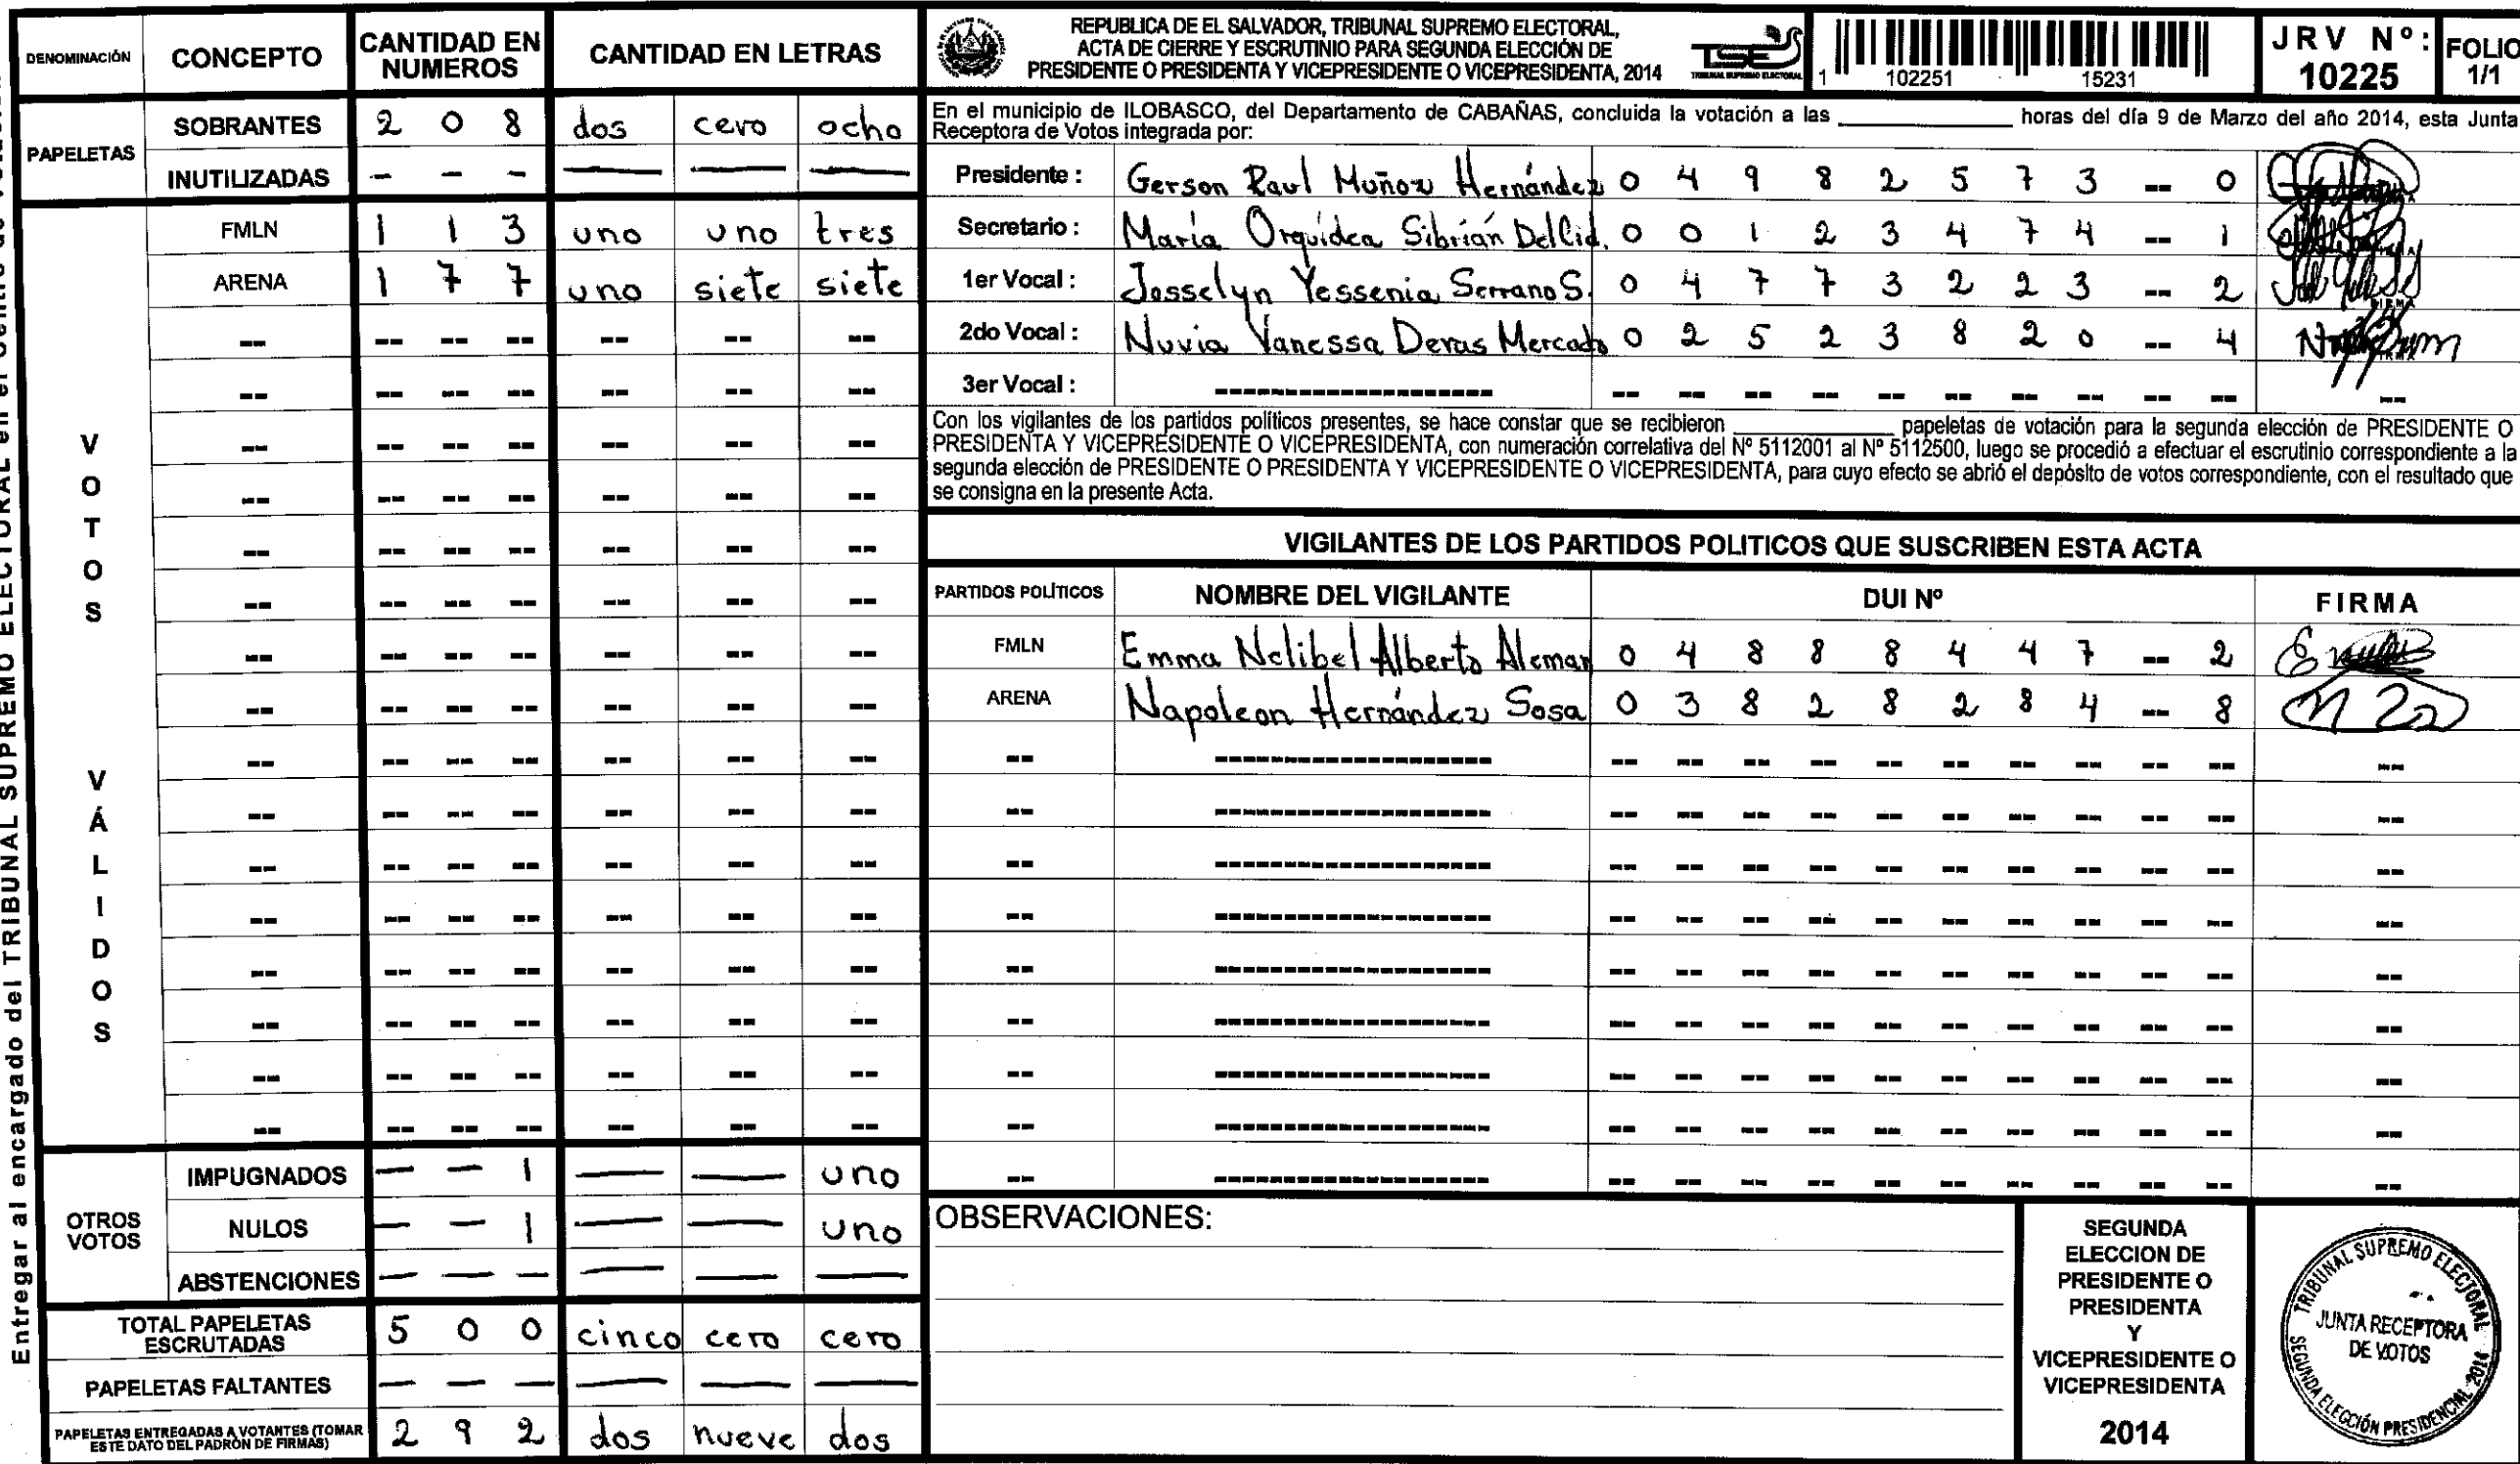 Entregar al encargado del TRIBUNAL SUPREMO ELECTORAL en el
DENOMINACIÓN CONCEPTO CANTIDAD EN NUMEROS CANTIDAD EN LETRAS
PAPELETAS
SOBRANTES 2 0 8 dos cero ocho
INUTILIZADAS - - - — — —
VOTOS VÁLIDOS
FMLN 1 1 3 uno uno tres
ARENA 1 7 7 uno siete siete
-- -- -- -- -- -- --
-- -- -- -- -- -- --
-- -- -- -- -- -- --
-- -- -- -- -- -- --
-- -- -- -- -- -- --
-- -- -- -- -- -- --
-- -- -- -- -- -- --
-- -- -- -- -- -- --
-- -- -- -- -- -- --
-- -- -- -- -- -- --
-- -- -- -- -- -- --
-- -- -- -- -- -- --
-- -- -- -- -- -- --
-- -- -- -- -- -- --
-- -- -- -- -- -- --
-- -- -- -- -- -- --
OTROS VOTOS
IMPUGNADOS — — 1 — — uno
NULOS — — 1 — — uno
ABSTENCIONES — — — — — —
TOTAL PAPELETAS ESCRUTADAS 5 0 0 cinco cero cero
PAPELETAS FALTANTES — — — — — —
PAPELETAS ENTREGADAS A VOTANTES (TOMAR ESTE DATO DEL PADRÓN DE FIRMAS) 2 9 2 dos nueve dos
REPUBLICA DE EL SALVADOR, TRIBUNAL SUPREMO ELECTORAL,
ACTA DE CIERRE Y ESCRUTINIO PARA SEGUNDA ELECCIÓN DE
PRESIDENTE O PRESIDENTA Y VICEPRESIDENTE O VICEPRESIDENTA, 2014
TSE
TRIBUNAL SUPREMO ELECTORAL
1 102251 15231
JRV Nº: 10225
FOLIO 1/1
En el municipio de ILOBASCO, del Departamento de CABAÑAS, concluida la votación a las ____________ horas del día 9 de Marzo del año 2014, esta Junta
Receptora de Votos integrada por:
Presidente : Gerson Raul Muñoz Hernández 0 4 9 8 2 5 7 3 -- 0
Secretario : María Orquídea Sibrián Del Cid. 0 0 1 2 3 4 7 4 -- 1
1er Vocal : Josselyn Yessenia Serrano S. 0 4 7 7 3 2 2 3 -- 2
2do Vocal : Nuvia Vanessa Deras Mercado 0 2 5 2 3 8 2 0 -- 4
3er Vocal : ------------------ -- -- -- -- -- -- -- -- -- -- --
Con los vigilantes de los partidos políticos presentes, se hace constar que se recibieron ____________ papeletas de votación para la segunda elección de PRESIDENTE O
PRESIDENTA Y VICEPRESIDENTE O VICEPRESIDENTA, con numeración correlativa del Nº 5112001 al Nº 5112500, luego se procedió a efectuar el escrutinio correspondiente a la
segunda elección de PRESIDENTE O PRESIDENTA Y VICEPRESIDENTE O VICEPRESIDENTA, para cuyo efecto se abrió el depósito de votos correspondiente, con el resultado que
se consigna en la presente Acta.
VIGILANTES DE LOS PARTIDOS POLITICOS QUE SUSCRIBEN ESTA ACTA
PARTIDOS POLÍTICOS NOMBRE DEL VIGILANTE DUI Nº FIRMA
FMLN Emma Nelibel Alberto Aleman 0 4 8 8 8 4 4 7 -- 2
ARENA Napoleon Hernández Sosa 0 3 8 2 8 2 8 4 -- 8
-- ------------------ -- -- -- -- -- -- -- -- -- -- --
-- ------------------ -- -- -- -- -- -- -- -- -- -- --
-- ------------------ -- -- -- -- -- -- -- -- -- -- --
-- ------------------ -- -- -- -- -- -- -- -- -- -- --
-- ------------------ -- -- -- -- -- -- -- -- -- -- --
-- ------------------ -- -- -- -- -- -- -- -- -- -- --
-- ------------------ -- -- -- -- -- -- -- -- -- -- --
-- ------------------ -- -- -- -- -- -- -- -- -- -- --
-- ------------------ -- -- -- -- -- -- -- -- -- -- --
OBSERVACIONES:
SEGUNDA
ELECCION DE
PRESIDENTE O
PRESIDENTA
Y
VICEPRESIDENTE O
VICEPRESIDENTA
2014
TRIBUNAL SUPREMO ELECTORAL
JUNTA RECEPTORA
DE VOTOS
SEGUNDA ELECCIÓN PRESIDENCIAL 2014